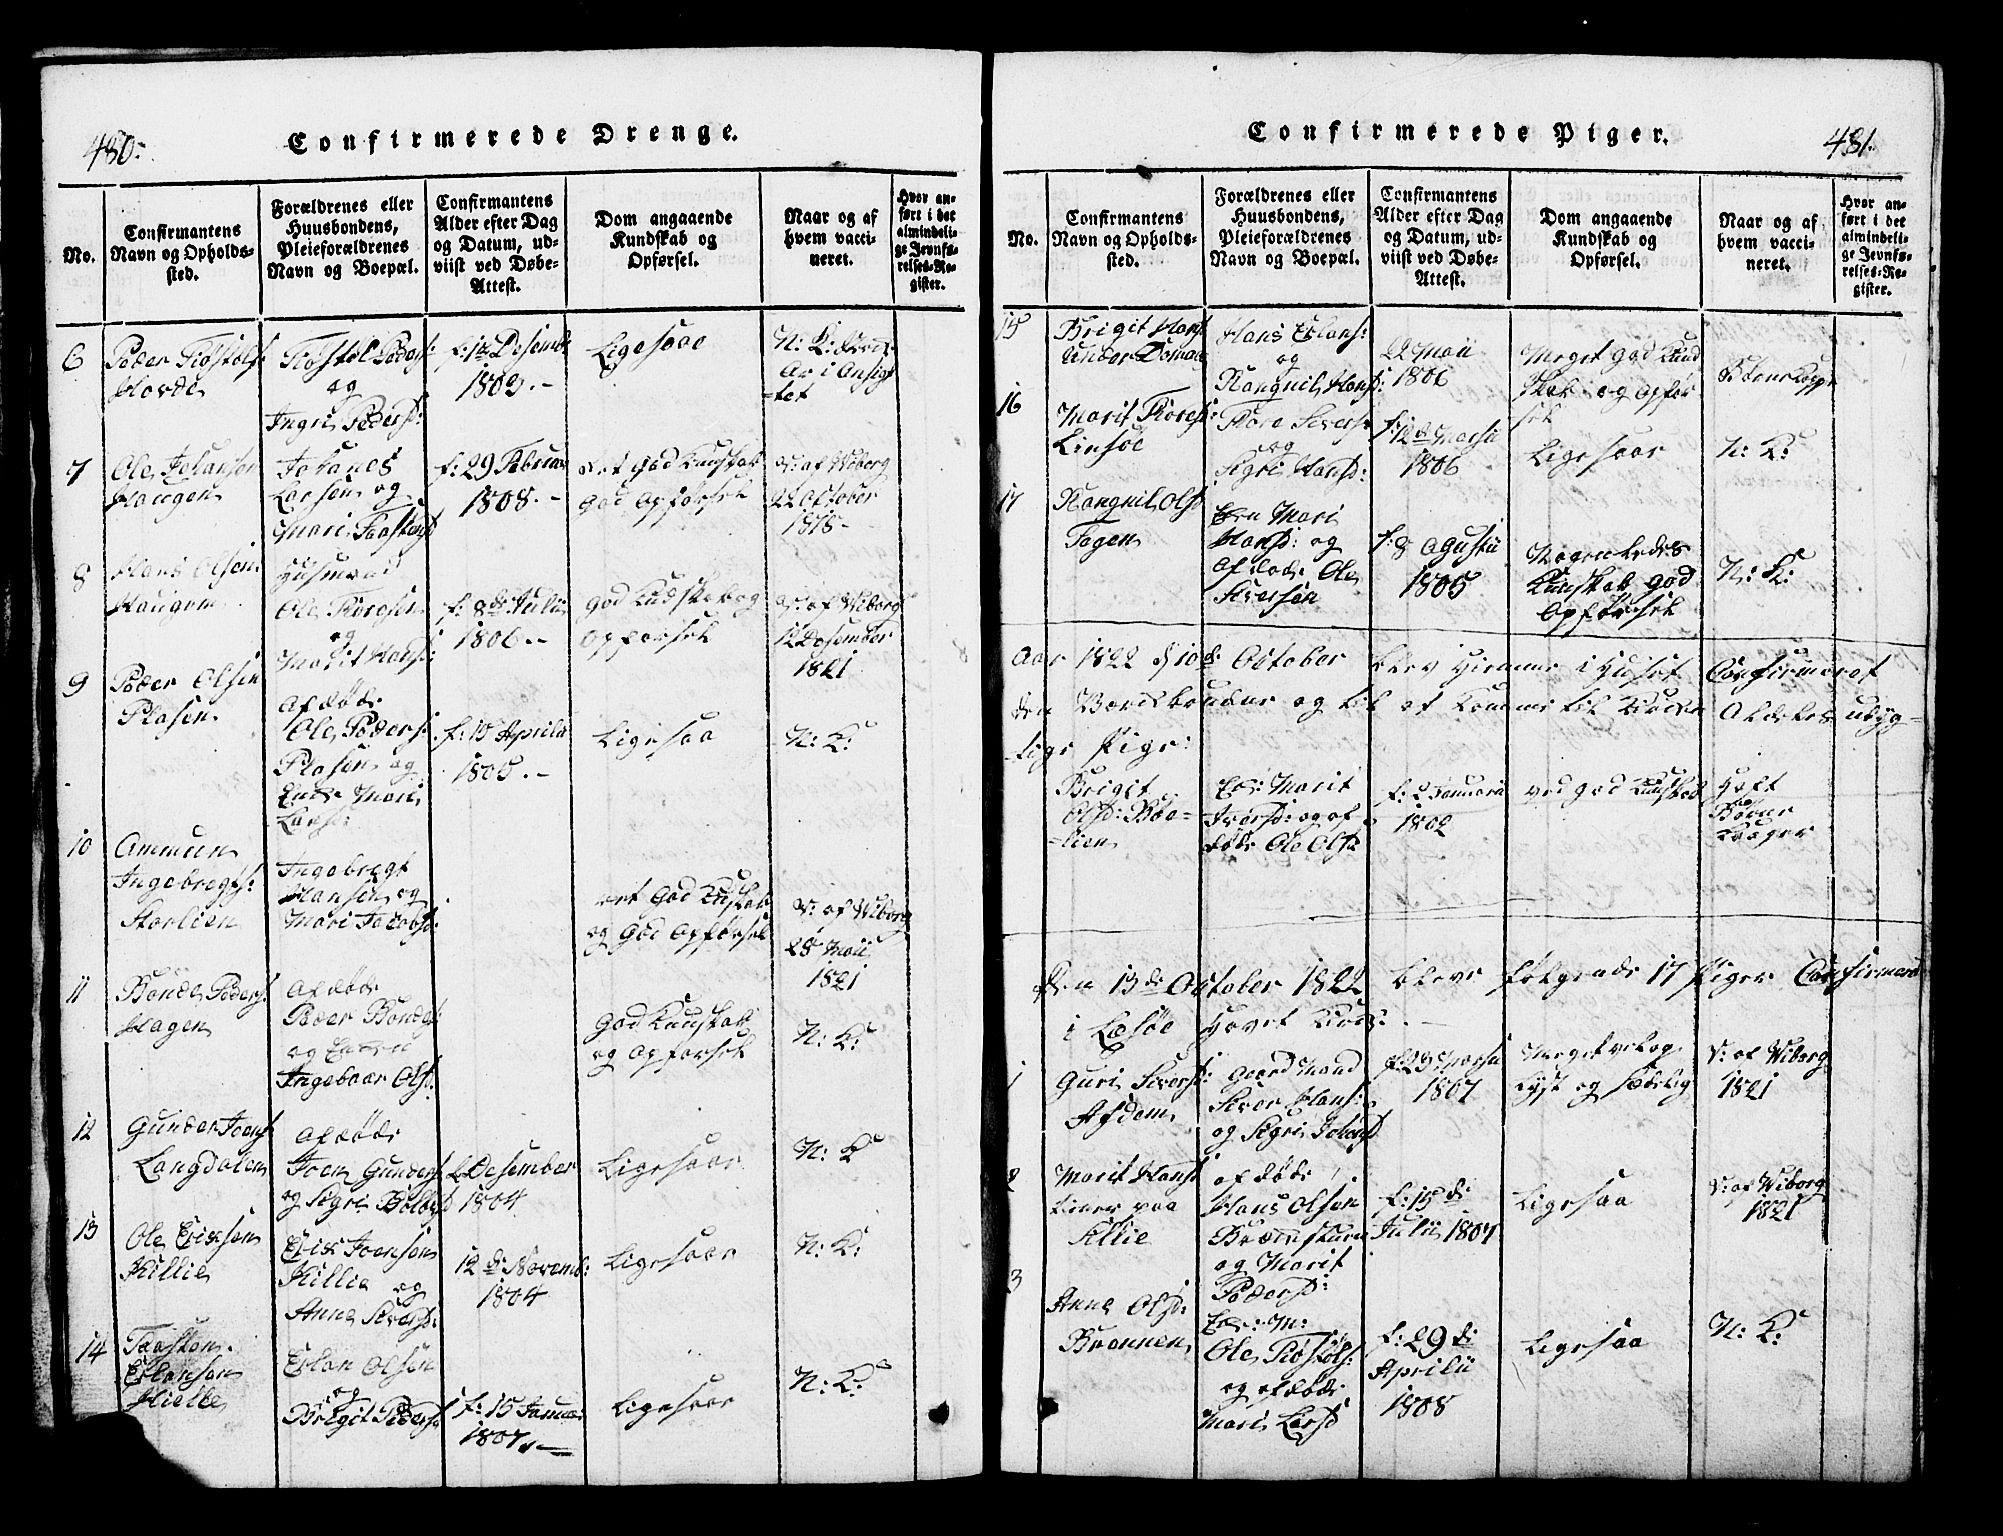 480.
Confirmerede Drenge.
No.
Confirmantens
Navn og Opholds-
sted.
Forældrenes eller
Huusbondens,
Pleieforældrenes
Navn og Boepæl.
Confirmantens
Alder efter Dag
og Datum, ud-
viist ved Døbe-
Attest.
Dom angaaende
Kundskab og
Opførsel.
Naar og af
hvem vacci-
neret.
Hvor an-
ført i det
almindeli-
ge Jevnfø-
relses-Re-
gister.
6
Peder Tiøstols:
Horde
Tiøstol Peders:
og
Ingri Pedersd:
1803.-
Ligesaa
i Ansig
-tet
7
Ole Johansen
Haugen
Johanes
Larsen og
Mari Taastensd
f: 29 Februar
1808.-
ret god Kundskab
god Opførsel
V: af Wiborg
22 October
1818-
8
Hans Olsen
Haugem
Husmand
Ole Toresen
og
Marit Hansd:
f: 8de Julii
1806.-
god Kudskab og
Opførsel
V: af Wiborg
12 Desember
1821
9
Peder Olsen
Plasen
Afdøde
Ole Peders:
Plasen og
Enke Mari
Larsd:
f: 15 Aprilii
1805.-
Ligesaa
N: K:
10
Ammun
Ingebregts:
Storlien
Ingebregt
Hansen og
Mari Jacobsd:
ret god Kudskab
og god Opførsel
V: af Wiborg
28 Maii
1821
11
Bonde Peders:
Hagen
Afdøde
Peder Bondes:
og Enken
Ingeboer Olsd:
god Kundskab
og Opførsel
N: K:
12
Gunder Joens:
Langdalen
Afdøde
Joen Gunders:
og Sigri
2 Desember
1804
Ligesaa
N: K:
13
Ole Eriksen
Killie
Erik Joensen
Killie og
Anne Siversd:
12 de: Novemb:
1804
Ligesaa
N: K:
14
Taasten
Erlansen
Hielle
Erlan Olsen
og
Brigit Pedersd
f: 15 Januar
1807.-
Ligesaa
N: K:
Confirmerede Piger.
481.
No.
Confirmantens
Navn og Opholds-
sted.
Forældrenes eller
Huusbondens,
Pleieforældrenes
Navn og Boepæl.
Confirmantens
Alder efter Dag
og Datum, ud-
viist ved Døbe-
Attest.
Dom angaaende
Kundskab og
Opførsel.
Naar og af
hvem vacci-
neret.
Hvor an-
ført i det
almindeli-
ge Jevnfø-
relses-Re-
gister.
15
Brigit Hansd
Hans Erlans:
og
Rangnil Hansd:
22 Maii
1806
Meget god Kund
skab og Opfør
sel
16
Marit Toresd:
Linsøe
Tore Sivers:
og
Sigri Hansd:
f: 12de Marsii
1806
Ligesaa
N: K:
17
Rangnil Olsd
Enken Mari
Hansd: og
Afdøde Ole
Siversen
f: 8 Agustii
1805
Nogenledes
Kunskab god
Opførsel
N: K:
Aar 1822 d 10de October blev hiemme i Huset Confirmeret
lige Pige:
Brigit
Olsd: Bøe-
-lien
Enk: Marit
Iversd: og af
døde Ole Ols:
f: 2 Januarii
1802
ved god Kunskab
Haft
Børne
Kopper
Den 13de October 1822 bleve følgende 17 Piger Confirmeret
i Læsøe Hoved Kirke:
1
Guri Siversd:
Gaard Mand
Siver Hans:
og Sigri
f: 23 Marsii
1807
Meget vel og
Lyst og sædelig
V: af Wiborg
1821
2
Marit Hansd
paa
Killie
afdøde
Hans Olsen
og Marit
Pedersd:
f: 15de
Julii 1807
Ligesaa
V: af Wiborg
1821
3
Anne Olsd:
Brennen
Ole Tiøstols:
og afdøde
Mari Larsd
f: 29 de
Aprilii
1808
Ligesaa
N: K: